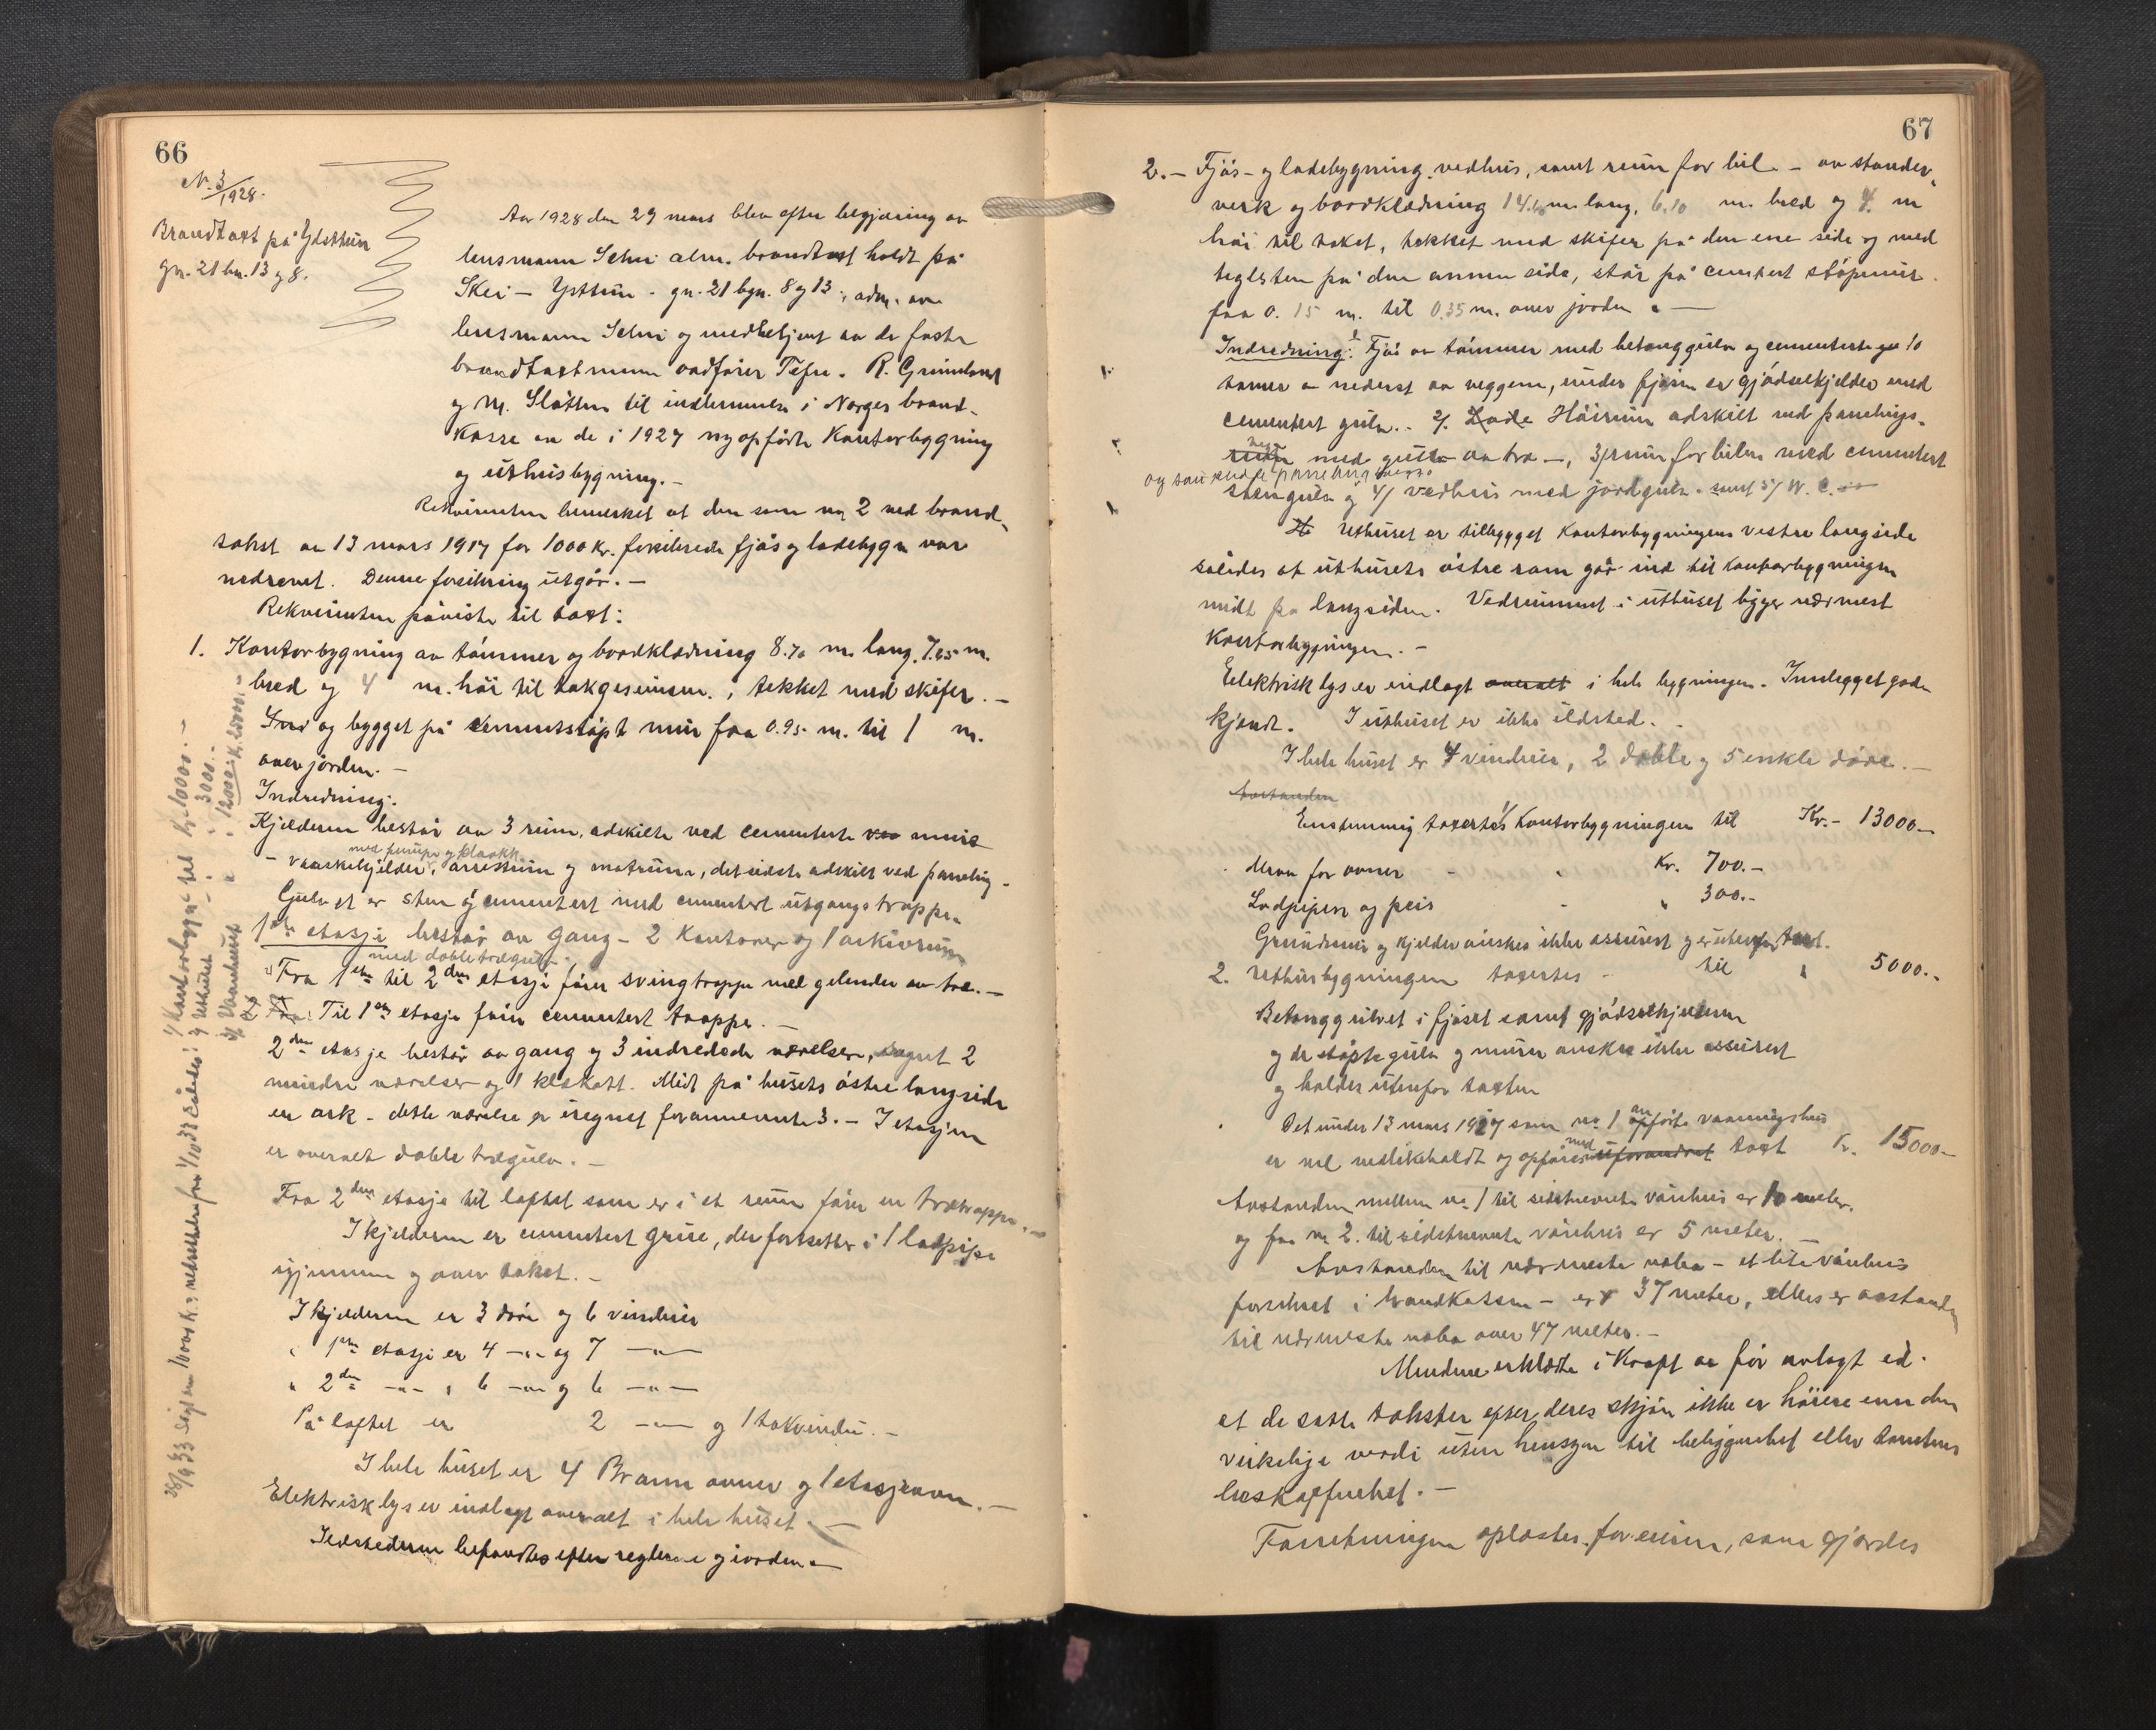 66
N. 3/1928.
Brandtaxt på Ystettun
gn. 21 bn. 13 og 8.
Aar 1928 den 29 mars blev efter begjæring av
lensmann Schei alm. brandtaxt holdt på
Skei – Ysttun – gn. 21 bgn. 8 og 13, adm. av
lensmann Schei og medbetjent av de faste
brandtaxtmenn R. Grimelund
og M. Slåtten til indlemmelse i Norges brand-
kasse av de i 1927 nyopførte Kontorbygning
og uthusbygning. –
Rekvirenten bemerket at den som no 2 ved brand-
takst av 13 mars 1917 for 1000 kr. forsikrede fjøs og ladebygn var
nedrevet. Denne forsikring utgår. –
Rekvirenten påviste til taxt:
1. Kontorbygning av tømmer og bordklædning 8.70 m. lang, 7.65 m.
bred og 4 m. høi til takgesimsen, tekket med skifer. –
og bygget på cementstøpt mur fra 0.95 m. til 1 m.
over jorden. –
Indredning:
Kjelderen består av 3 rum, adskilte ved cementerte mure
med pumpe og klosett
– vaskekjelder, arrestrum og matrum, det sidste adskilt ved paneling –
Gulvet er sten og cementert med cementert utgangstrappe.
1ste etasje består av gang – 2 Kontorer og 1 arkivrum
med doble trægulv.
1) Fra 1ste til 2den etasje fører svingtrappe med gelender av træ. –
2) Til 1ste etasje fører cementert trappe. –
2den etasje består av gang og 3 indredede værelser, 2
mindre værelser og 1 kleskott. Midt på husets østre langside
en ark – dette værelse er iregnet forannevnte 3. – I etasjen
er overalt doble trægulv. –
Fra 2den etasje til loftet som er i et rum fører en trætrappe. –
I kjelderen er cementert grue, der fortsetter i 1 lodpipe
igjennem og over taket. –
I kjelderen er 3 døre og 6 vinduer
" 1ste etasje er 4 –"– og 7 –"–
" 2den –"– " 6 –"– og 6 –"–
På loftet er 2 –"– og 1 takvindu. –
I hele huset er 4 ovner og 1 etasjeovn. –
Elektrisk lys er indlagt overalt i hele huset. –
Ildstederne befandtes efter reglerne i orden. –
1/ Kontorbygn. til kr. 10000. –
2/ Uthuset – " 3000. –
3/ Vaanhuset " 12000.
67
2. – Fjøs- og ladebygning, vedhus, samt rum for bil – av stender-
verk og bordklædning 14.60 m. lang, 6.10 m. bred og 4. m
høi til taket, tekket med skifer på den ene side og med
teglsten på den annen side, står på cementert støpemur
fra 0.15 m. til 0.35 m. over jorden. –
Indredning: 1/ Fjøs av tømmer med betonggulv og cementerte
nederst av veggene, under fjøsen er gjødselkjelder med
cementert gulv. 2/ Lade Høirum adskilt ved panelings-
med gulv av træ –, 3/ rum for bilen med cementert
stengulv og 4/ vedhus med jordgulv. samt 5/ W. C.
Uthuset er tilbygget Kontorbygningens vestre langside
således at uthusets østre ram går ind til kontorbygningen
midt på langsiden. Vedrummet i uthuset ligger nærmest
Kontorbygningen. –
Elektrisk lys er indlagt overalt i hele bygningen. Innlegget god-
kjendt. I uthuset er ikke ildsted. –
I hele huset er 4 vinduer, 2 doble og 5 enkle døre. –
Avstanden
Enstemmig taxertes 1/ Kontorbygningen til Kr. – 13000 –
Herav for ovner – " Kr. 700. –
Lodpipen og peis – " 300. –
Grundmur og kjelder ønskes ikke assurert og er utenfor taxt.
2. Uthusbygningen taxertes – til " 5000. –
Betonggulvet i fjøset samt gjødselkjelderen
og de støpte gulv og murer ønskes ikke assurert
og holdes utenfor taxten
Det under 13 mars 1917 som no 1 anførte vaaningshus
er vel vedlikeholdt og opføres med uforandret taxt Kr. 15000 –
Avstanden mellem no. 1 til sidstnevnte vånhus er 10 meter.
og fra no 2. til sidstnevnte vånhus er 5 meter. –
Avstanden til nærmeste nabo – et lite vånhus
forsikret i brandkassen – er 37 meter, ellers er avstanden
til nærmeste nabo over 47 meter. –
Mendene erklærte i kraft av før avlagt ed
at de satte takster efter deres skjøn ikke er høiere enn den
virkelige verdi uten hensyn til beliggenhet eller tomtens
beskaffenhet. –
Forretningen oplæstes foreuren, som gjordes